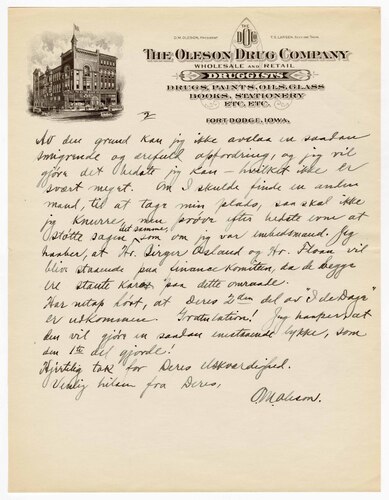 O.M. OLESON, PRESIDENT
T.S. LARSEN, SEC'Y AND TREAS.
THE OLESON DRUG COMPANY
WHOLESALE AND RETAIL
DRUGGISTS
DRUGS, PAINTS, OILS, GLASS
BOOKS, STATIONERY
ETC. ETC.
FORT DODGE, IOWA,
2
Av den grund kan jeg ikke avslaa en saadan
smigrende og ærefull opfordring, og jeg vil
gjøre det bedste jeg kan – hvilket ikke er
svært meget. Om I skulde finde en anden
mand, til at tage min plads, saa skal ikke
jeg knurre, men prøve efter bedste evne at
støtte sagen det samme, som om jeg var embedsmand. Jeg
haaber, at Hr. Birger Osland og Hr. Floan vil
blive staaende paa finance komitten, da de begge
ere stante karer paa dette omraade.
Har netop hørt, at Deres 2den del av "I de Dage"
er utkommen. Gratulation! Jeg haaper at
den vil gjøre en saadan enestaaende lykke, som
den 1ste del gjorde!
Hjertelig tak for Deres Elskværdighed.
Venlig hilsen fra Deres,
O.M. Oleson.